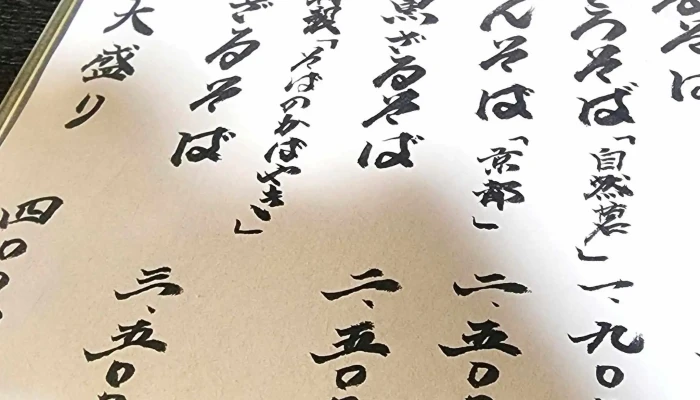 ろそば「自然薯」一、九〇
んそば「京都」二、五〇
黒ざるそば 二、五〇
製「そばのかばやき」
ざるそば 三、五〇
大盛り 四〇